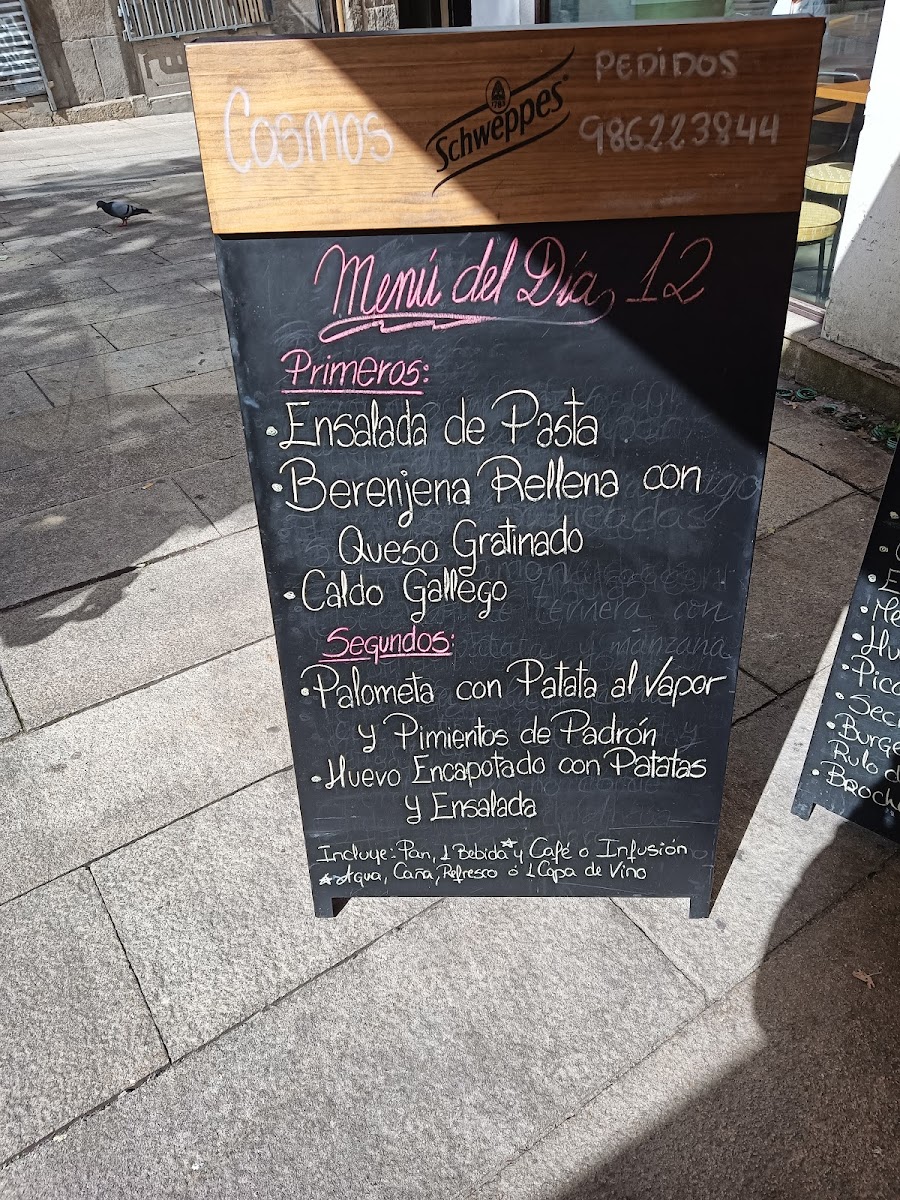 Cosmos
1783
Schweppes®
PEDIDOS
986223844
Menú del Día, 12
Primeros:
• Ensalada de Pasta
• Berenjena Rellena con
Queso Gratinado
• Caldo Gallego
Segundos:
• Palometa con Patata al Vapor
y Pimientos de Padrón
• Huevo Encapotado con Patatas
y Ensalada
Incluye: Pan, 1 Bebida* y Café o Infusión
*Agua, Caña, Refresco ó 1 Copa de Vino
Rulo d